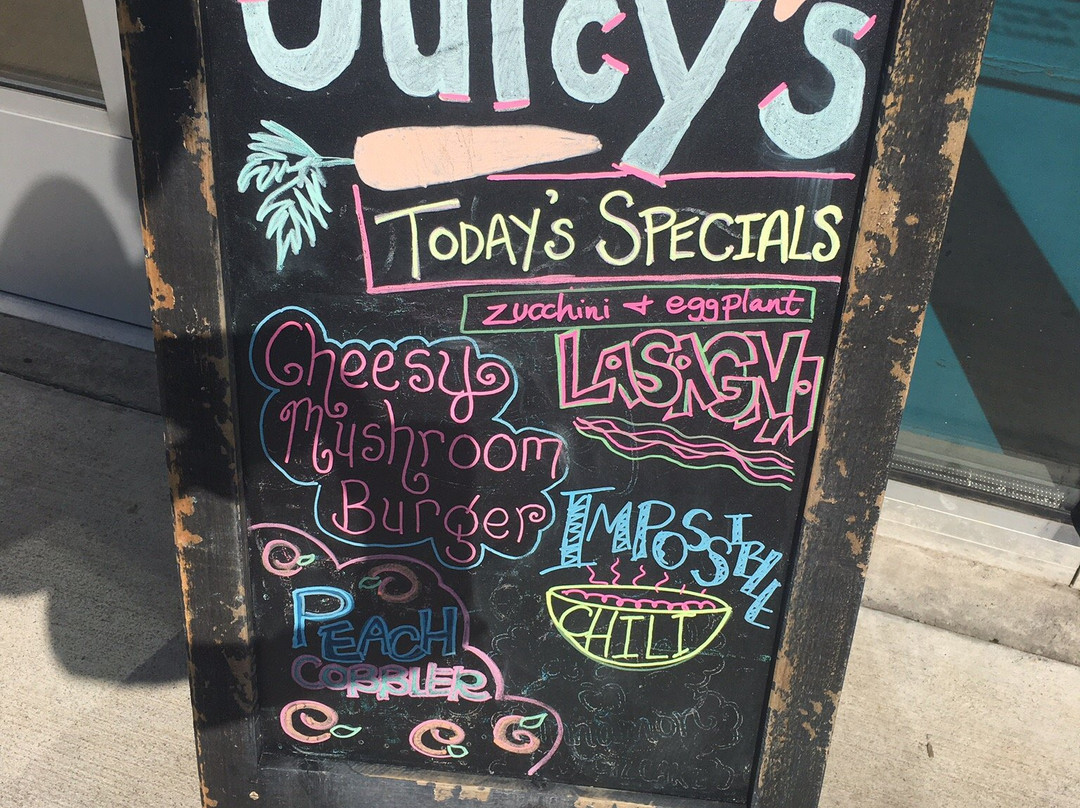 Juicy's
TODAY'S SPECIALS
zucchini + eggplant
LASAGNA
Cheesy
Mushroom
Burger
IMPOSSIBLE
CHILI
PEACH
COBBLER